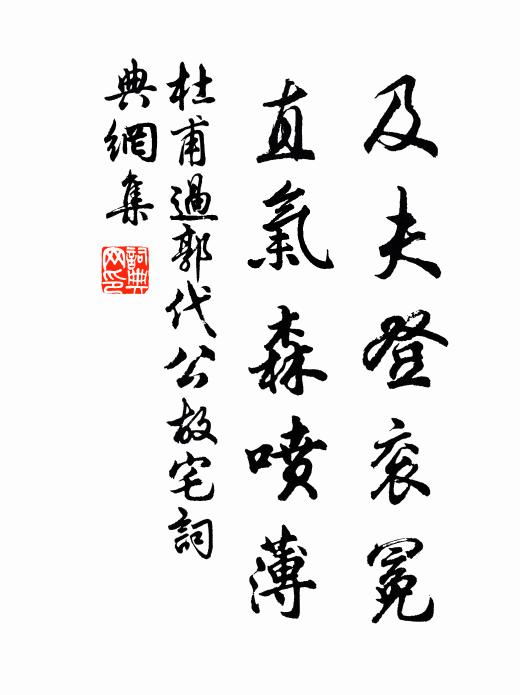 及夫登衮冕
直氣森噴薄
杜甫過郭代公故宅詞
典網集
詞典網印